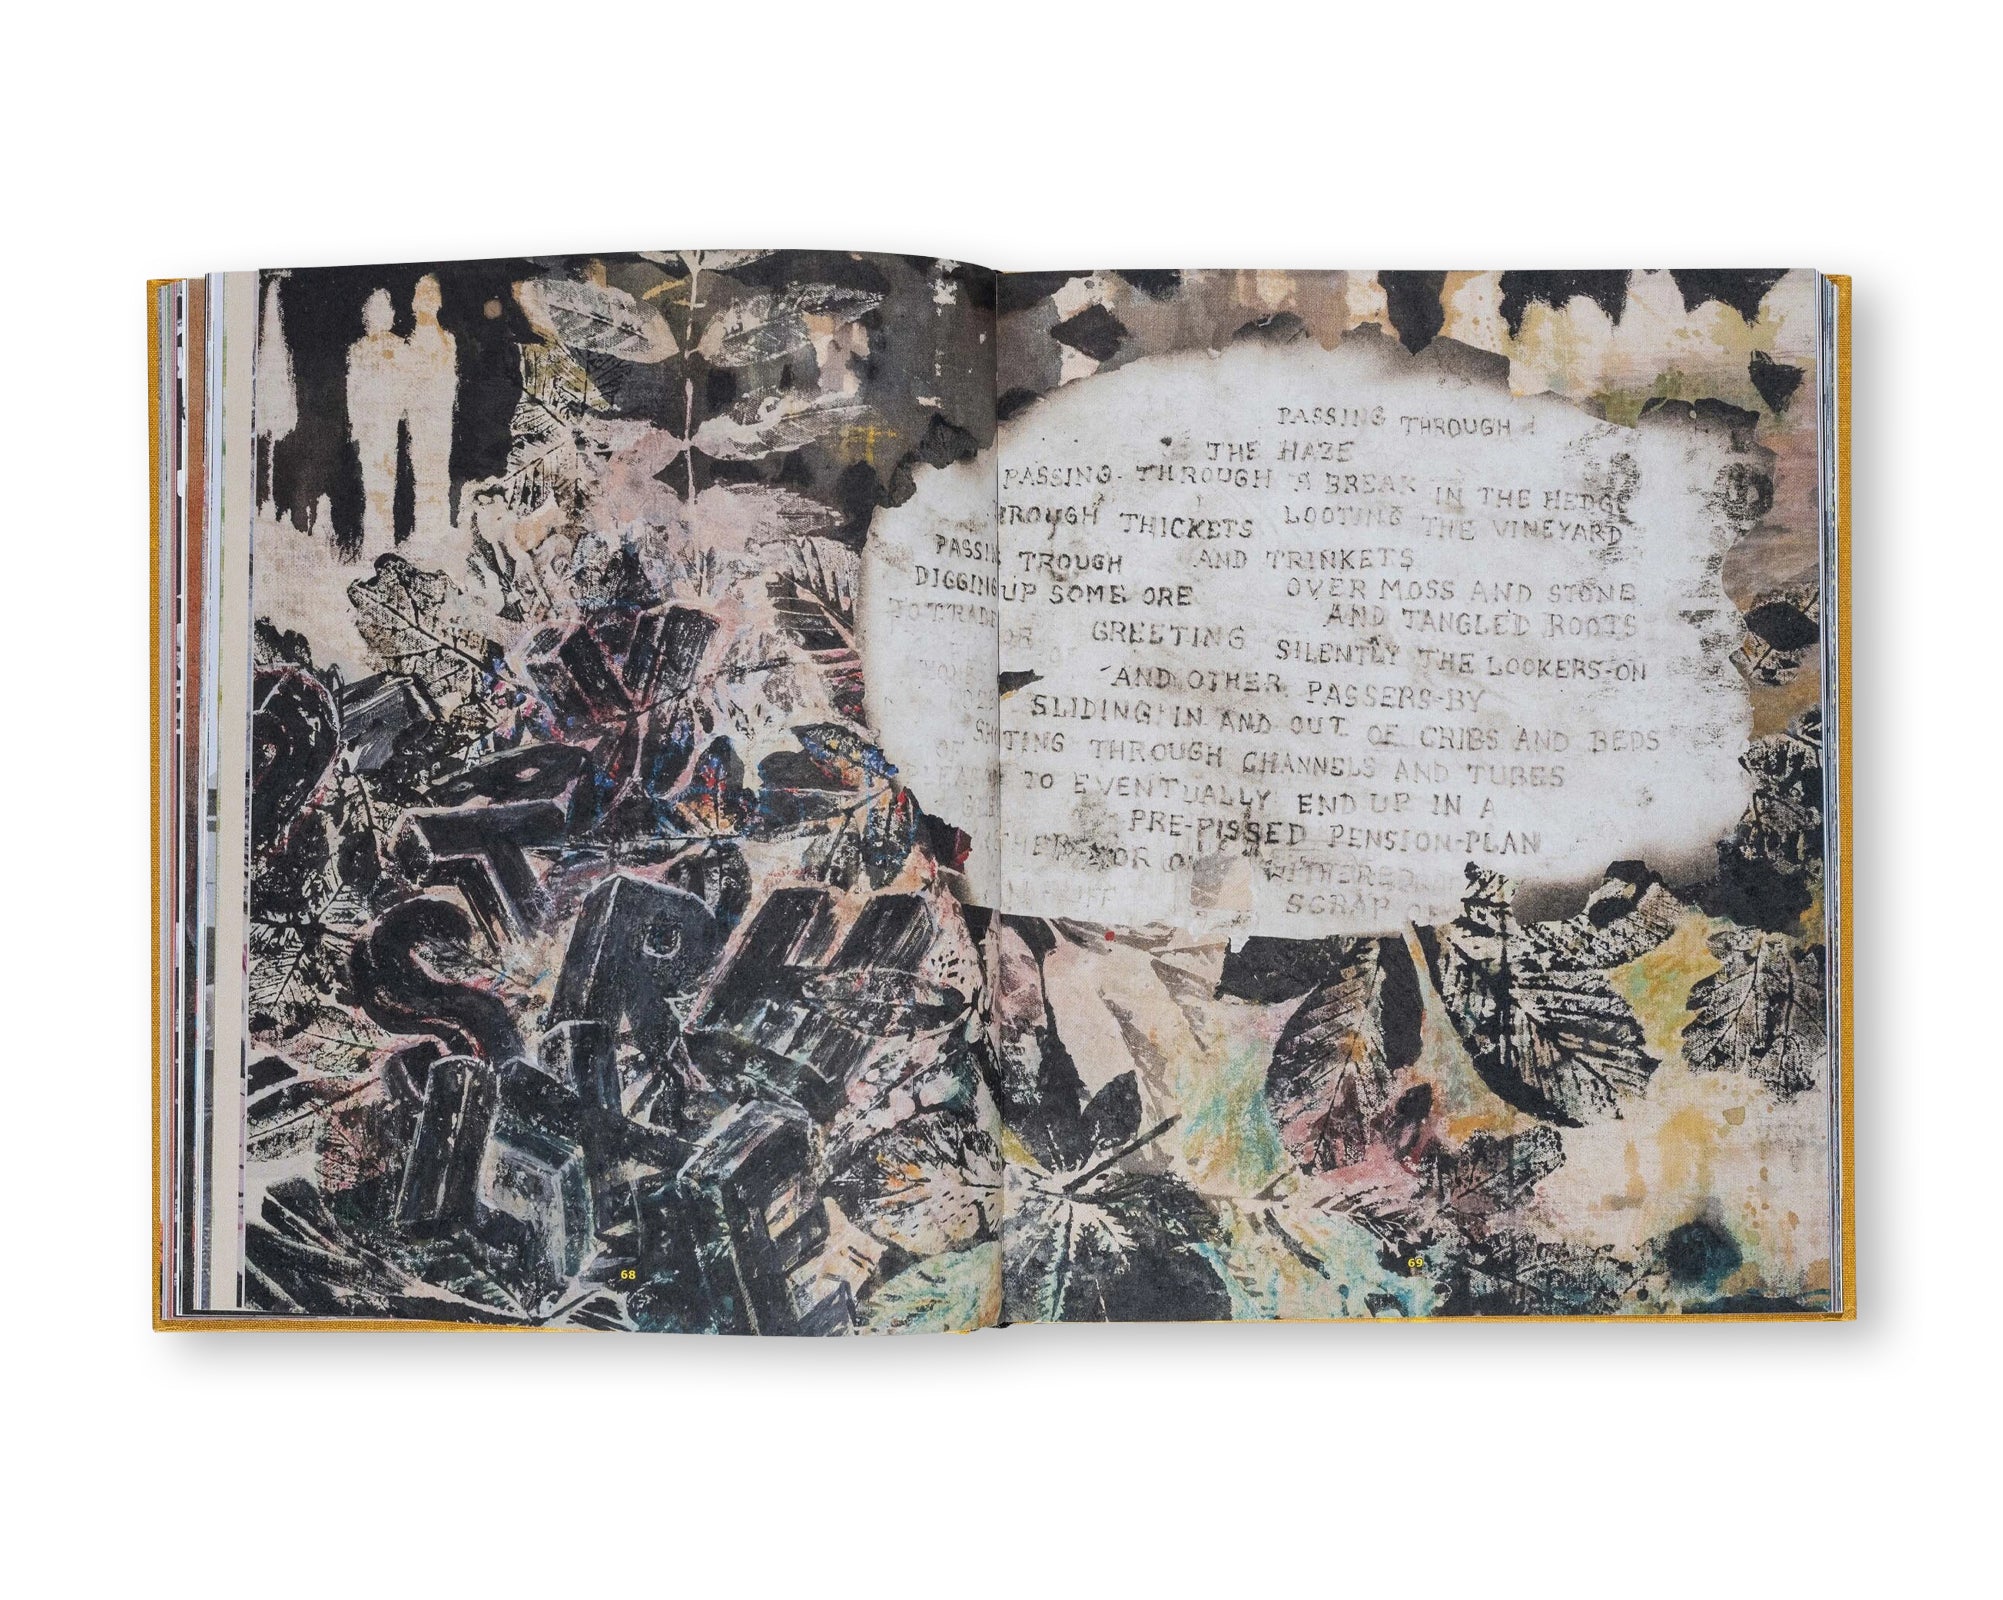 PASSING THROUGH
THE HAZE
PASSING THROUGH A BREAK IN THE HEDGE
THROUGH THICKETS LOOTING THE VINEYARD
PASSING TROUGH AND TRINKETS
DIGGING UP SOME ORE OVER MOSS AND STONE
TO TRADE FOR AND TANGLED ROOTS
GREETING SILENTLY THE LOOKERS-ON
AND OTHER PASSERS-BY
SLIDING IN AND OUT OF CRIBS AND BEDS
SHOOTING THROUGH CHANNELS AND TUBES
TO EVENTUALLY END UP IN A
PRE-PISSED PENSION-PLAN
OR WITHERED
SCRAP
68
69